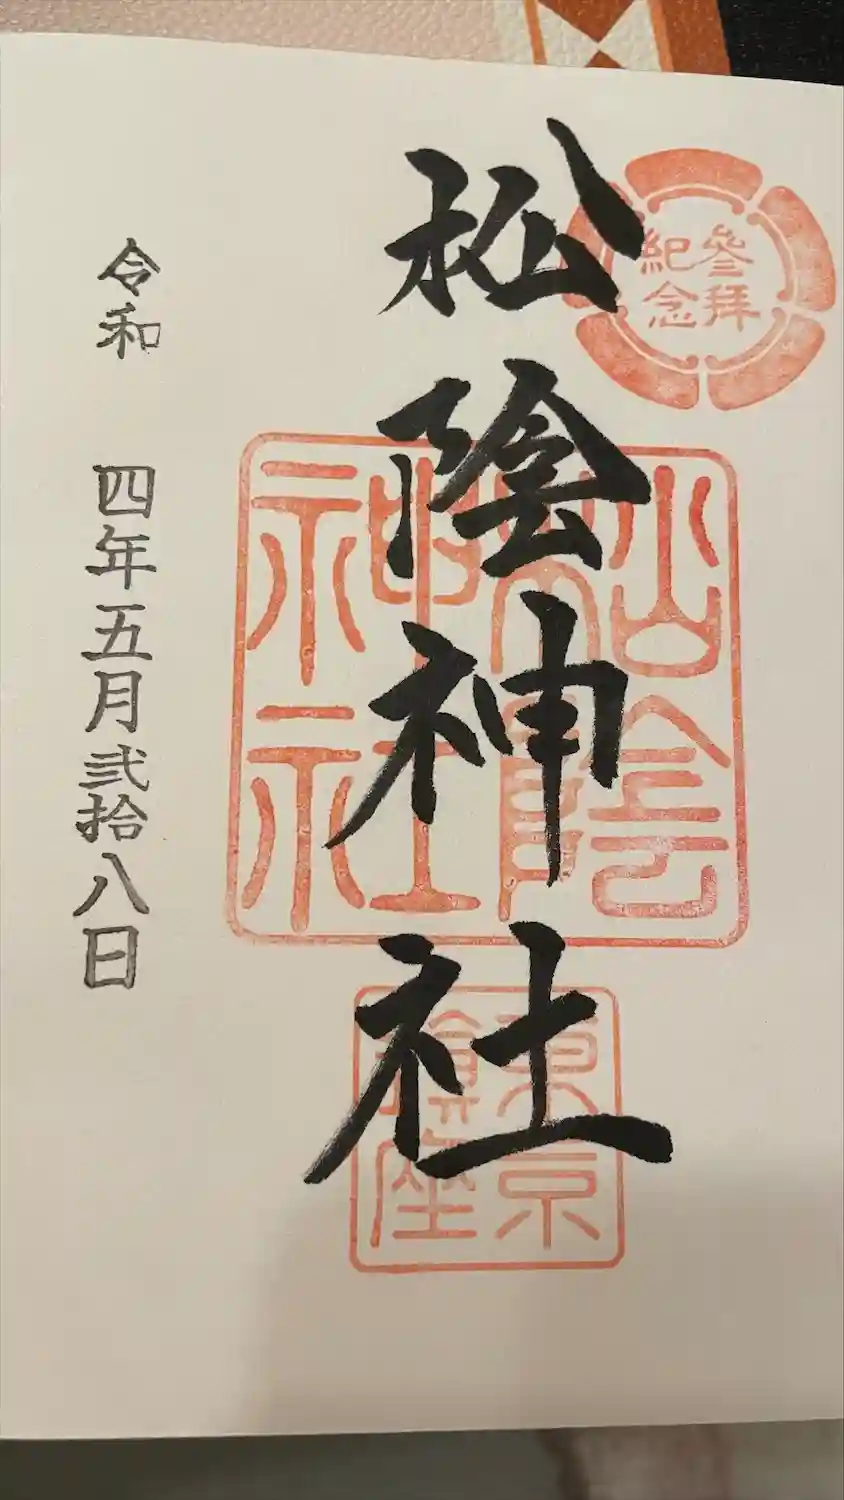 參拝
紀念
松陰神社
松陰
神社
東京
鎮座
令和 四年五月弐拾八日